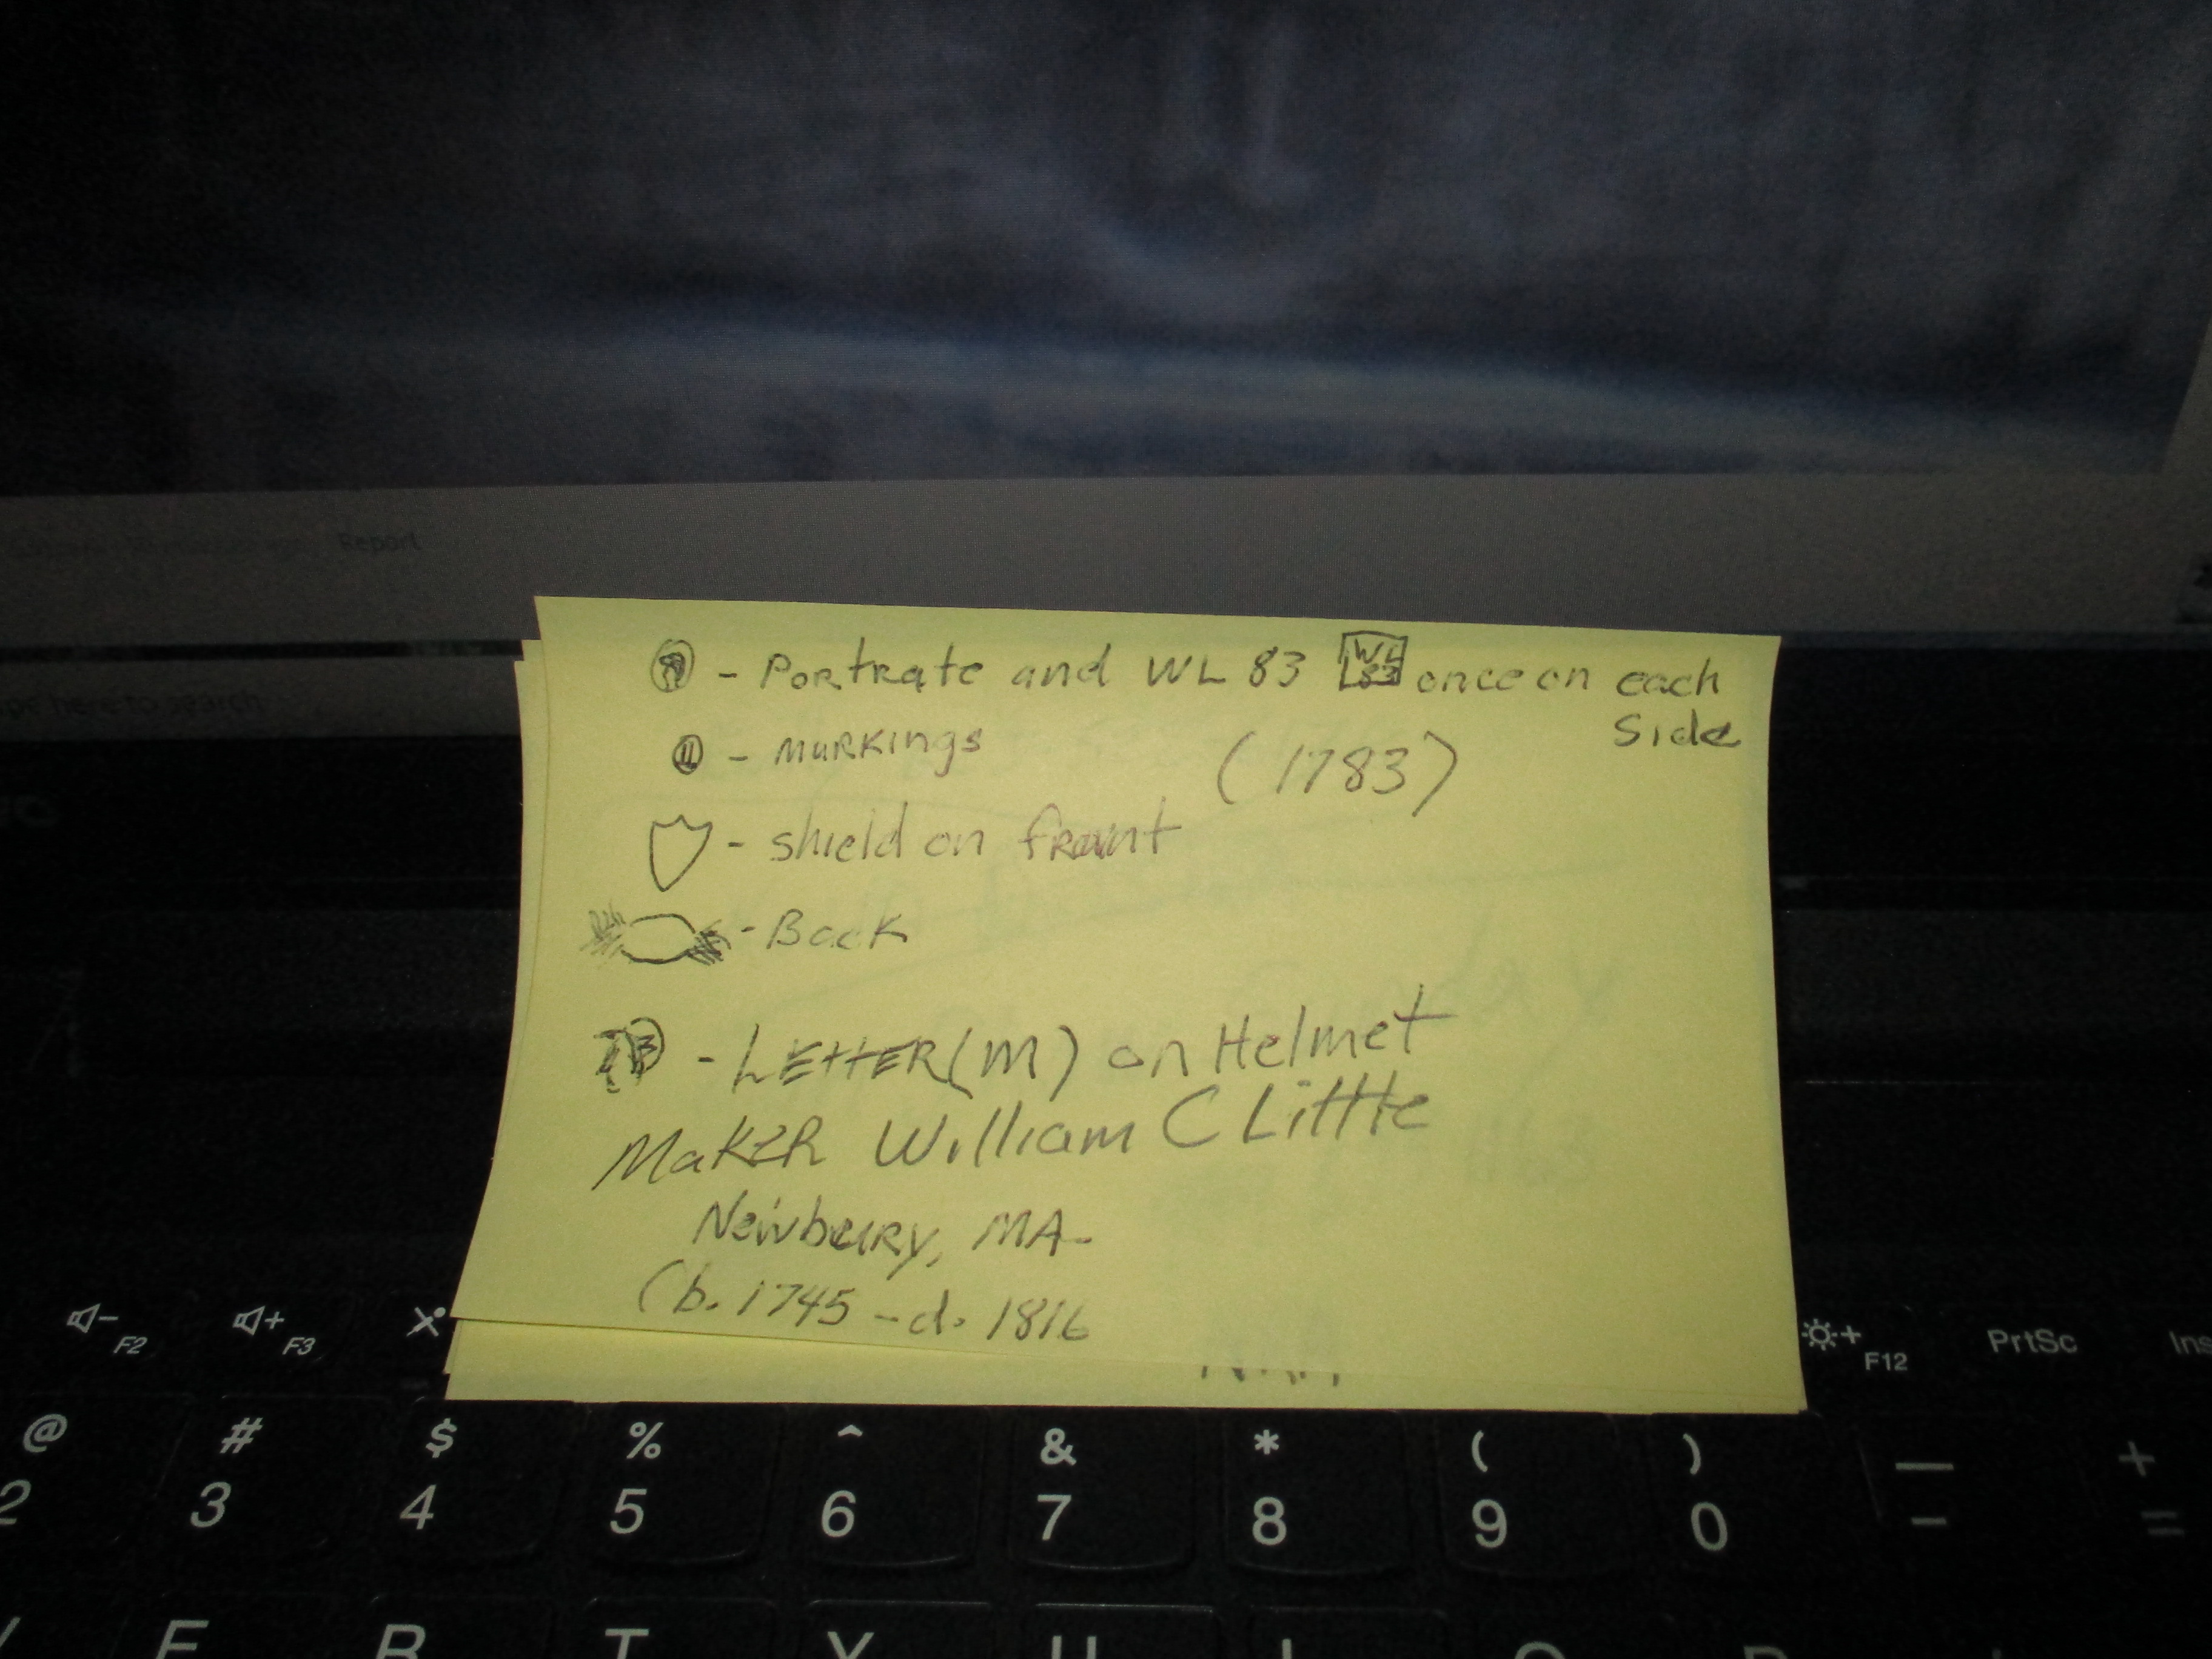 Report
pe here to search
- Portrate and WL 83 WL 83 once on each
Side
- Markings
(1783)
- shield on fraunt
- Back
- LETTER (M) on Helmet
Maker William C Little
Newbury, MA-
(b. 1745 - d. 1816
F2 F3 F12 PrtSc Ins
@ # $ % ^ & * ( ) — +
2 3 4 5 6 7 8 9 0 - =
E R T Y U I O P